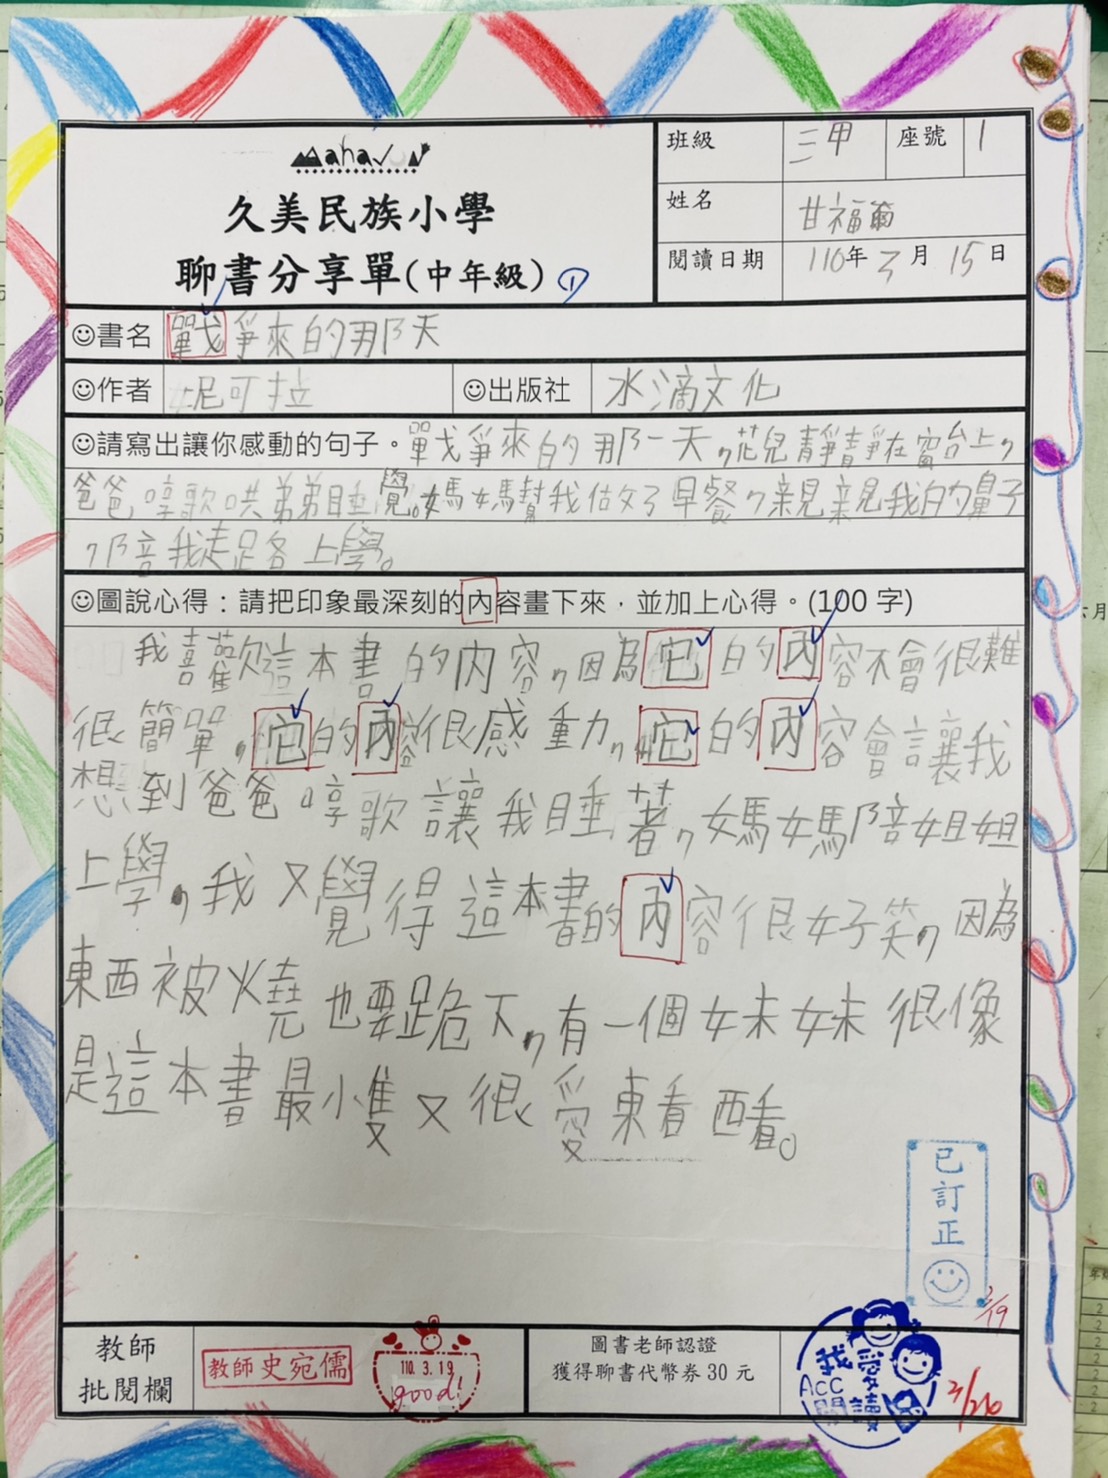 Mahavun
班級 三甲 座號 1
久美民族小學
姓名 甘福爾
聊書分享單(中年級) ①
閱讀日期 110年3月15日
☺書名 戰爭來的那天
☺作者 妮可拉 ☺出版社 水滴文化
☺請寫出讓你感動的句子。戰爭來的那一天,花兒靜靜在窗台上,
爸爸哼歌哄弟弟睡覺。媽媽幫我做好了早餐,親親我的鼻子
,陪我走路上學。
☺圖說心得:請把印象最深刻的內容畫下來,並加上心得。(100字)
我喜歡這本書的內容,因為它的內容不會很難
很簡單,它的內容很感動,它的內容會讓我
想到爸爸哼歌讓我睡著,媽媽陪姐姐
上學,我又覺得這本書的內容很好笑,因為
東西被火燒也要跪下,有一個妹妹很像
是這本書最小隻又很愛東看西看。
已訂正
3/19
教師
批閱欄
教師史宛儒
110.3.19
good!
圖書老師認證
獲得聊書代幣券30元
我愛
Acc
閱讀
3/26